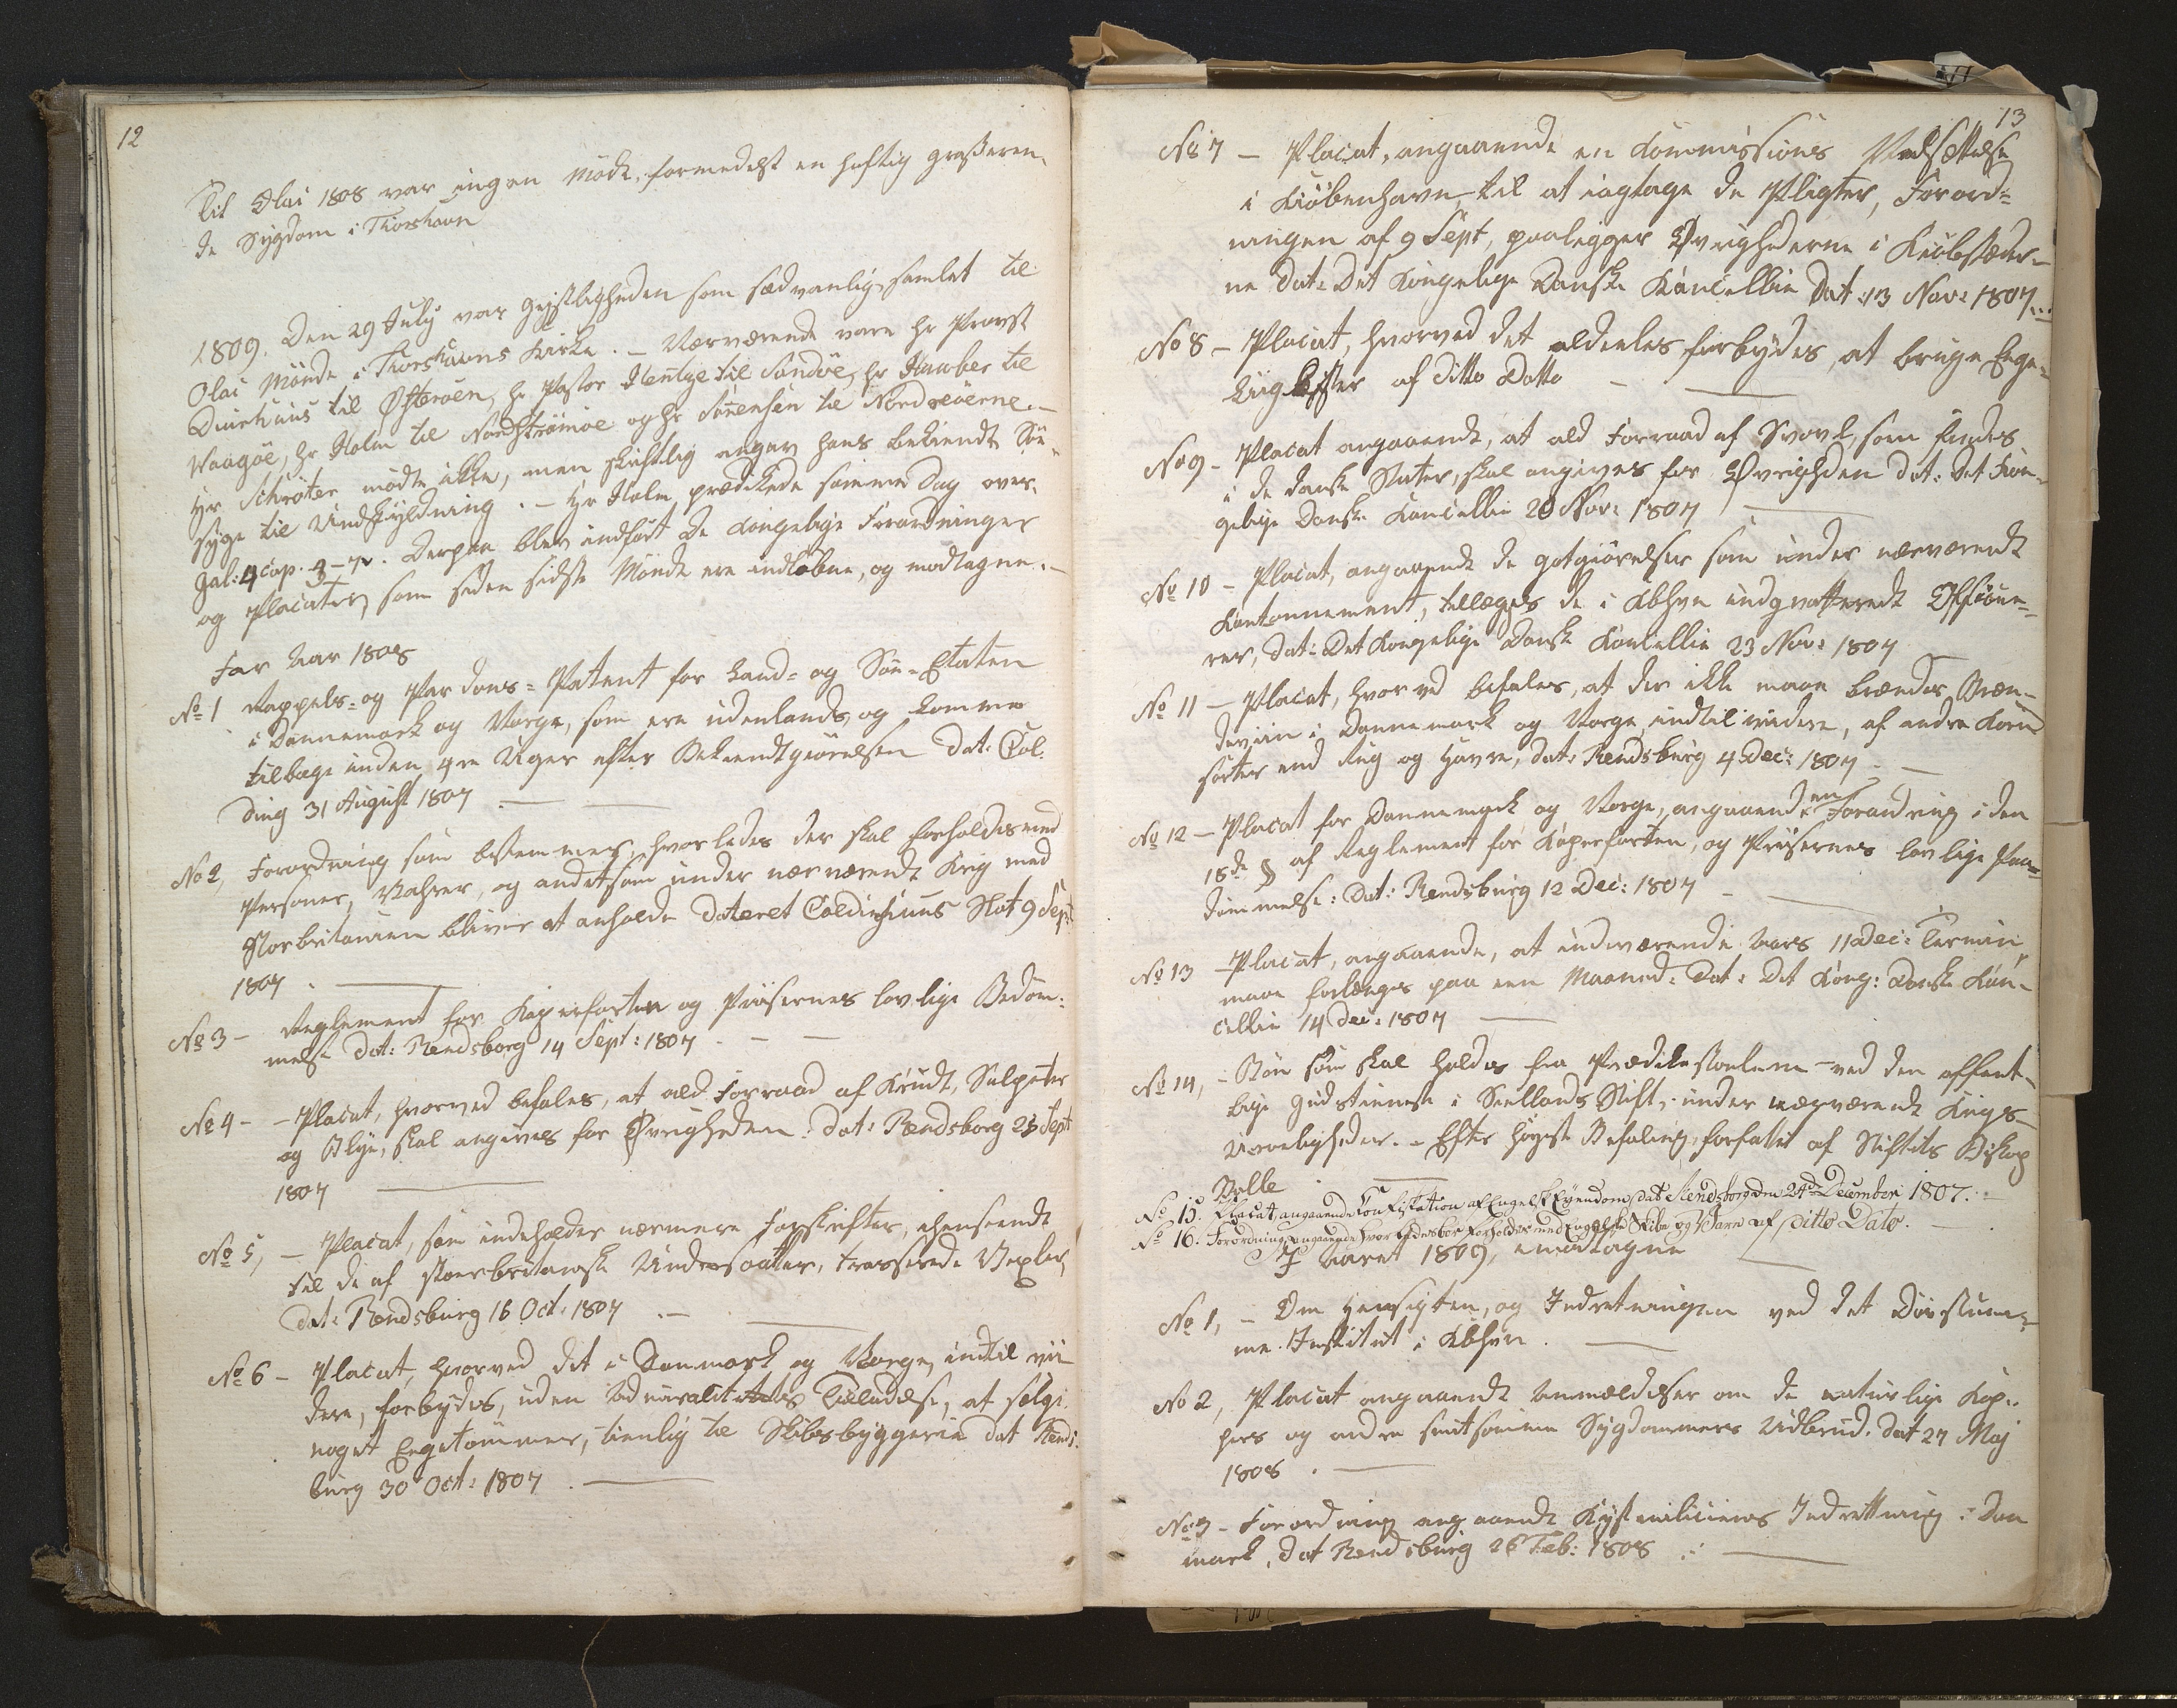 12
Til Olai 1808 var ingen Møde, formedelst en heftig grasseren-
de Sygdom i Thorshavn
1809. Den 29 July var Geistligheden som sædvanlig samlet til
Olai Mønde i Thorshavns Kirke. – Nærværende vare Hr Provst
Duurhuus til Østerøen, Hr Pastor Hentze til Sandøe, Hr Hauber til
Waagøe, Hr Holm til Nordstrømøe og Hr Sørensen til Norderøerne. –
Hr Schrøter mødte ikke, men skriftlig angav hans bekiendte Søe-
syge til Undskyldning. – Hr Holm prædikede samme Dag over
Gal: 4 Cap. 3–7 v. Derpaa blev indført De Kongelige Forordninger
og Placater, som siden sidste Mønde ere indløbne, og modtagne. –
For Aar 1808
No 1 Rappels- og Pardons-Patent for Land- og Søe-Etaten
i Dannemark og Norge, som ere udenlands, og komme
tilbage inden 4re Uger efter Bekiendtgiørelsen Dat: Col-
ding 31 August 1807
No 2, Forordning som bestemmer, hvorledes der skal forholdes med
Personer, Vahrer, og andet som under nærværende Krig med
Storbritanien bliver at anholde Dateret Coldinghuus Slot 9 Sept
1807
No 3 – Reglement for Kaperfarten og Priisernes lovlige Bedøm-
melse Dat: Rendsborg 14 Sept: 1807
No 4 – Placat, hvorved befales, at ald Forraad af Krudt, Salpeter
og Blye, skal angives for Øvrigheden: dat: Rendsborg 23 Sept
1807
No 5, – Placat, som indeholder nærmere Forskrifter, henseende
til de af storbritanske Undersaatter, trasserede Vexler,
Dat: Rendsburg 16 Oct: 1807
No 6 – Placat, hvorved det i Danmark og Norge, indtil vii-
dere, forbydes, uden Admiralitetets Tilladelse, at sælge
noget Egetømmer, tienlig til Skibsbyggerie dat Rends-
burg 30 Oct: 1807
13
No 7 – Placat, angaaende en Kommissions Nedsættelse
i Kiøbenhavn, til at iagtage de Pligter, Forord-
ningen af 9 Sept, paalegger Øvrighederne i Kiøbstæder-
ne Dat: Det Kongelige Danske Kancellie Dat: 13 Nov: 1807
No 8 – Placat, hvorved det aldeeles forbydes, at bruge Ege-
Liigkister af Ditto Dato
No 9 – Placat angaaende, at ald Forraad af Svovl, som findes
i de danske Stater, skal angives for Øvrigheden dat: Det Kon-
gelige Danske Kancellie 20 Nov: 1807
No 10 – Placat, angaaende de Godtgiørelser som under nærværende
Kantonnement, tillægges de i Kbhvn indqvarterede Officee-
rer, Dat: Det Kongelige Danske Kancellie 23 Nov: 1807
No 11 – Placat, hvorved befales, at der ikke maae brændes Bræn-
deviin i Dannemark og Norge indtil videre, af andre Korn
sorter end Rug og Havre, dat: Rendsburg 4 Dec: 1807
No 12 – Placat for Dannemark og Norge, angaaende en Forandring i den
18de § af Reglement for Kaperfarten, og Priisernes lovlige Paa-
dømmelse: Dat: Rendsburg 12 Dec: 1807
No 13 – Placat, angaaende, at indeværende Aars 11 Dec: Termin
maae forlænges paa een Maaned: Dat: Det Kong: Danske Kan-
cellie 14 Dec: 1807
No 14, – Bøn som skal holdes fra Prædikestoelene ved den offent-
lige Gudstieneste i Siellands Stift, under nærværende Krigs-
Uroeligheder. – Efter høyeste Befaling, forfattet af Stiftets Biskop
Balle
No 15. Placat, angaaende Confiskation af Engelsk Eyendom, dat: Rendsborg den 24de December 1807. –
No 16. Forordning angaaende hvorledes bør forholdes med Engelske Skibe og Vare af Ditto Dato. –
I Aaret 1809, modtagne
No 1, – Om Hensigten, og Indretningen ved det Døvstum-
me-Institut i Kbhvn
No 2, Placat angaaende Anmældelser om de naturlige Kop-
pers og andre smitsomme Sygdommers Udbrud. dat 27 Maj
1808
No 3 – Forordning angaaende Kystmiliciens Indretning i Dan
mark, dat Rendsburg 26 Feb: 1808